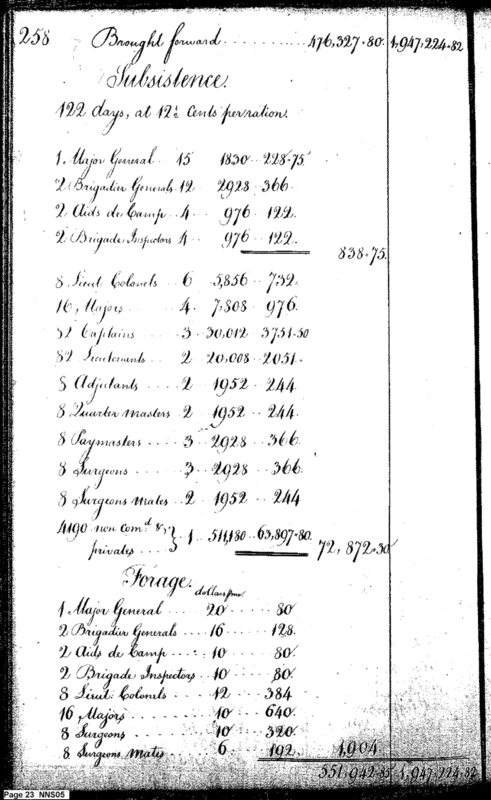 258 Brought forward 476,327.80. 1,947,224.82
Subsistence.
122 days, at 12½ Cents per ration.
1. Major General 15 1830 228.75
2 Brigadier Generals 12 2928 366
2 Aids de Camp 4 976 122
2 Brigade Inspectors 4 976 122
838.75
8 Lieut Colonels 6 5,856 732
16, Majors 4 7,808 976
82 Captains 3 30,012 3751.50
82 Lieutenants 2 20,008 2051
8 Adjutants 2 1952 244
8 Quarter Masters 2 1952 244
8 Paymasters 3 2928 366
8 Surgeons 3 2928 366
8 Surgeons Mates 2 1952 244
4190 non comd &
privates } 1 511,180 63,897.80. 72,872.30
Forage.
dollars pmo.
1 Major General 20 80
2 Brigadier Generals 16 128
2 Aids de Camp 10 80
2 Brigade Inspectors 10 80
8 Lieut: Colonels 12 384
16 Majors 10 640
8 Surgeons 10 320
8 Surgeons Mates 6 192 1,904
551,942.85 1,947,224.82
Page 23 NNS05